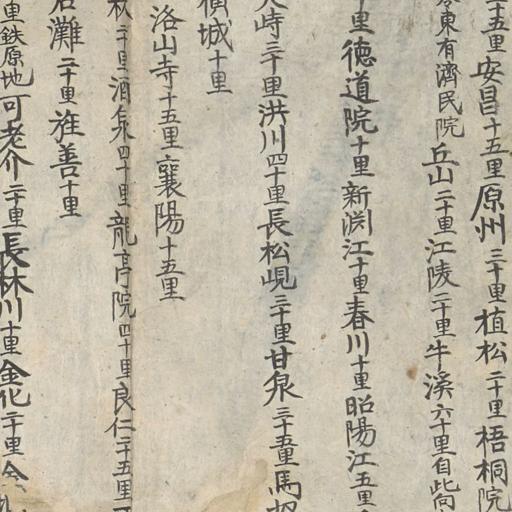 十五里安昌十五里原州三十里植松二十里梧桐院
東有濟民院丘山二十里江陵二十里牛溪六十里自此向
十里德道院十里新渕江十里春川十里昭陽江五里
峙三十里洪川四十里長松峴三十里甘泉三十五里馬
橫城十里
洛山寺十五里襄陽十五里
二十里酒泉四十里龍亭院四十里良仁二十五里
灘二十里旌善十里
里鉄原地可老介二十里長林川十里金化二十里金